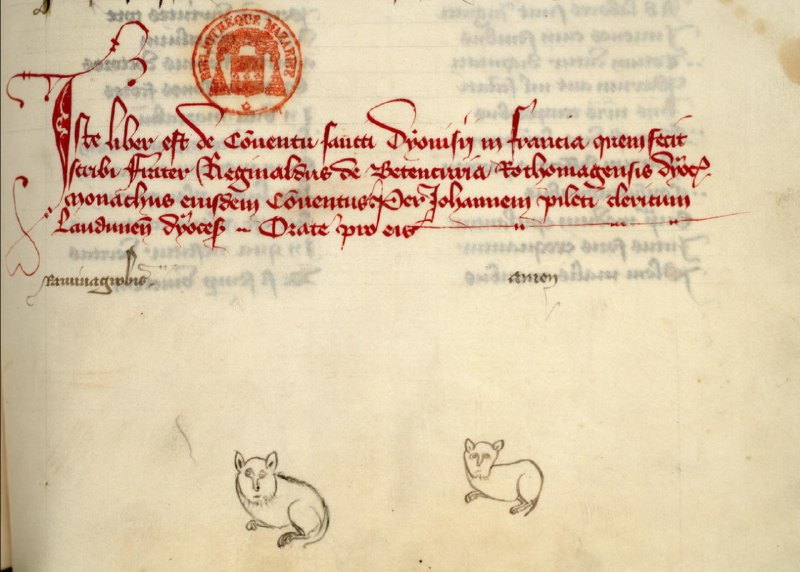 BIBLIOTHEQUE MAZARINE
Iste liber est de Co̅ventu sancti Dyonisii in francia quem fecit
scribi Frater Reginaldus de Betencuria Rothomagensis dyoc̅.
monachus eiusdem Co̅ventus: Per Johannem pileti clericum
Laudunen̅ dyoces̅ .. Orate pro eis
Raminagrobis
amen